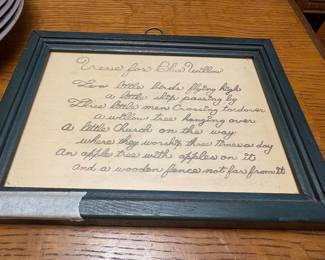 Verse for Blue Willow
Two little birds flying high
a little ship passing by
Three little men Crossing to dover
a willow tree hanging over
A little Church on the way
where they worship three Times a day
An apple tree with apples on it
And a wooden fence not far from it